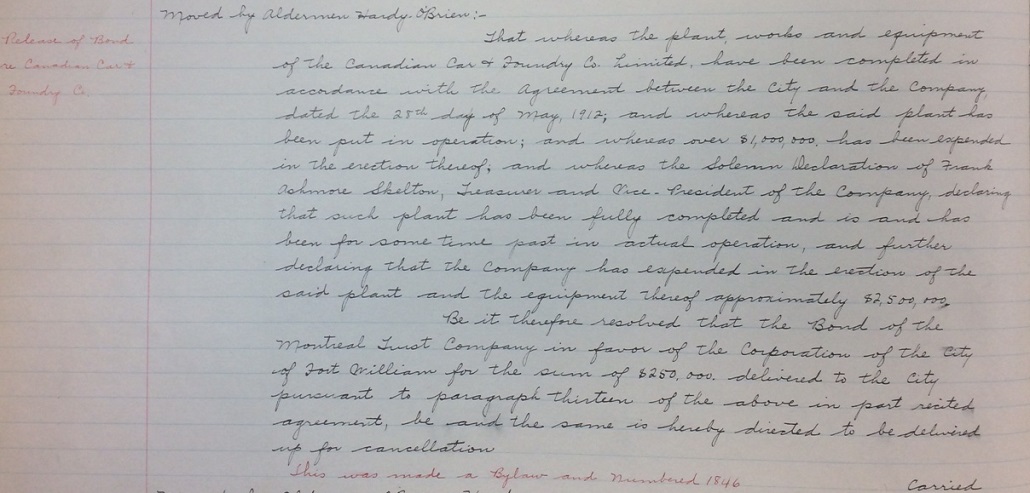 Moved by Aldermen Hardy-O'Brien:-
Release of Bond
re Canadian Car &
Foundry Co.
That whereas the plant, works and equipment
of the Canadian Car & Foundry Co. Limited, have been completed in
accordance with the Agreement between the City and the Company,
dated the 28th day of May, 1912; and whereas the said plant has
been put in operation; and whereas over $1,000,000. has been expended
in the erection thereof; and whereas the Solemn Declaration of Frank
Ashmore Skelton, Treasurer and Vice-President of the Company, declaring
that such plant has been fully completed and is and has
been for some time past in actual operation, and further
declaring that the Company has expended in the erection of the
said plant and the equipment thereof approximately $2,500,000,
Be it therefore resolved that the Bond of the
Montreal Trust Company in favor of the Corporation of the City
of Fort William for the sum of $250,000. delivered to the City
pursuant to paragraph thirteen of the above in part recited
agreement, be and the same is hereby directed to be delivered
up for cancellation
This was made a Bylaw and Numbered 1846
Carried